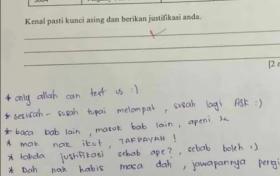 Kenal pasti kunci asing dan berikan justifikasi anda.
* only allah can test us :)
* sesusah - susah tupai melompat, susah lagi ASK :)
* baca bab lain, masuk bab lain, apeni
* mak nak ikut, TAKPAYAH !
* takda justifikasi sebab ape?, sebab boleh :)
* Dah nak habis masa dah, jawapannya pergi